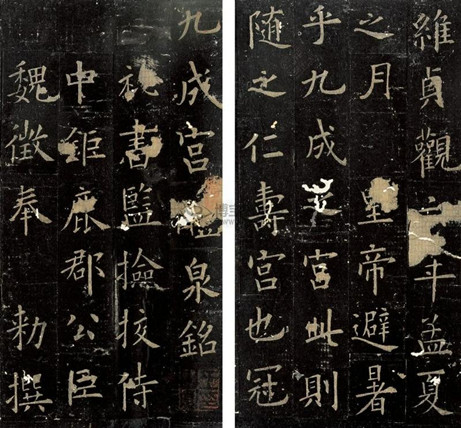 九成宮泉銘
秘書監撿挍侍
中鉅鹿郡公臣
魏徵奉 勑撰
維貞觀年孟夏
之月 皇帝避暑
乎九成宮此則
隨之仁壽宮也冠